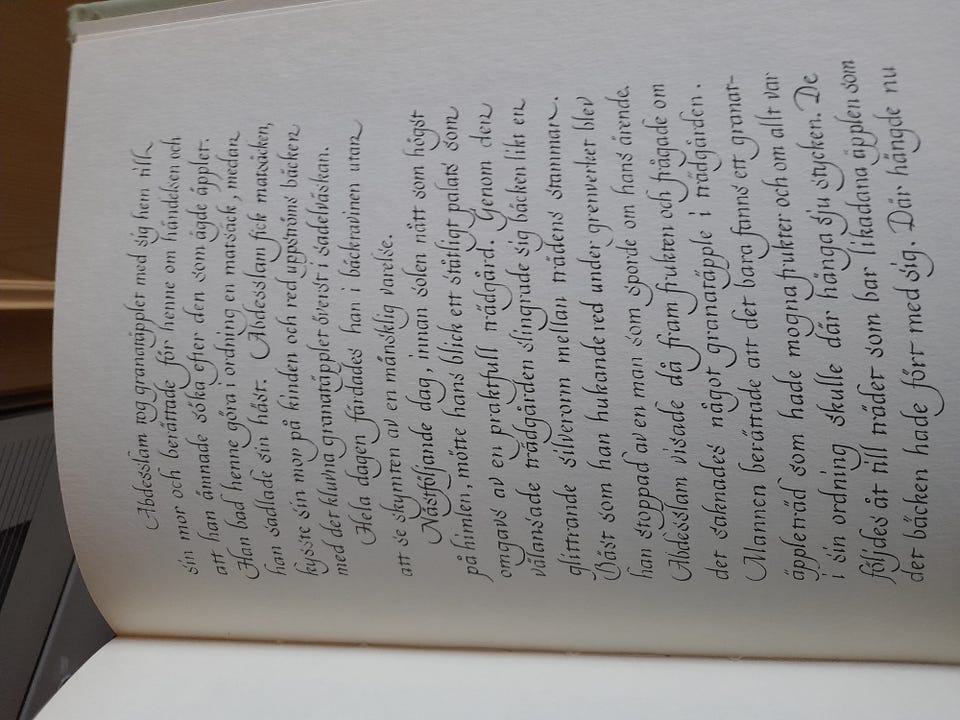 Abdesslam tog granatäpplet med sig hem till
sin mor och berättade för henne om händelsen och
att han ämnade söka efter den som ägde äpplet.
Han bad henne göra i ordning en matsäck, medan
han sadlade sin häst. Abdesslam fick matsäcken,
kysste sin mor på kinden och red uppströms bäcken
med det kluvna granatäpplet överst i sadelväskan.
Hela dagen färdades han i bäckravinen utan
att se skymten av en mänsklig varelse.
Nästföljande dag, innan solen nått som högst
på himlen, mötte hans blick ett ståtligt palats som
omgavs av en praktfull trädgård. Genom den
välansade trädgården slingrade sig bäcken likt en
glittrande silverorm mellan trädens stammar.
Bäst som han hukande red under grenverket blev
han stoppad av en man som sporde om hans ärende.
Abdesslam visade då fram frukten och frågade om
det saknades något granatäpple i trädgården.
Mannen berättade att det bara fanns ett granat-
äppleträd som hade mogna frukter och om allt var
i sin ordning skulle där hänga sju stycken. De
följdes åt till trädet som bar likadana äpplen som
det bäcken hade fört med sig. Där hängde nu